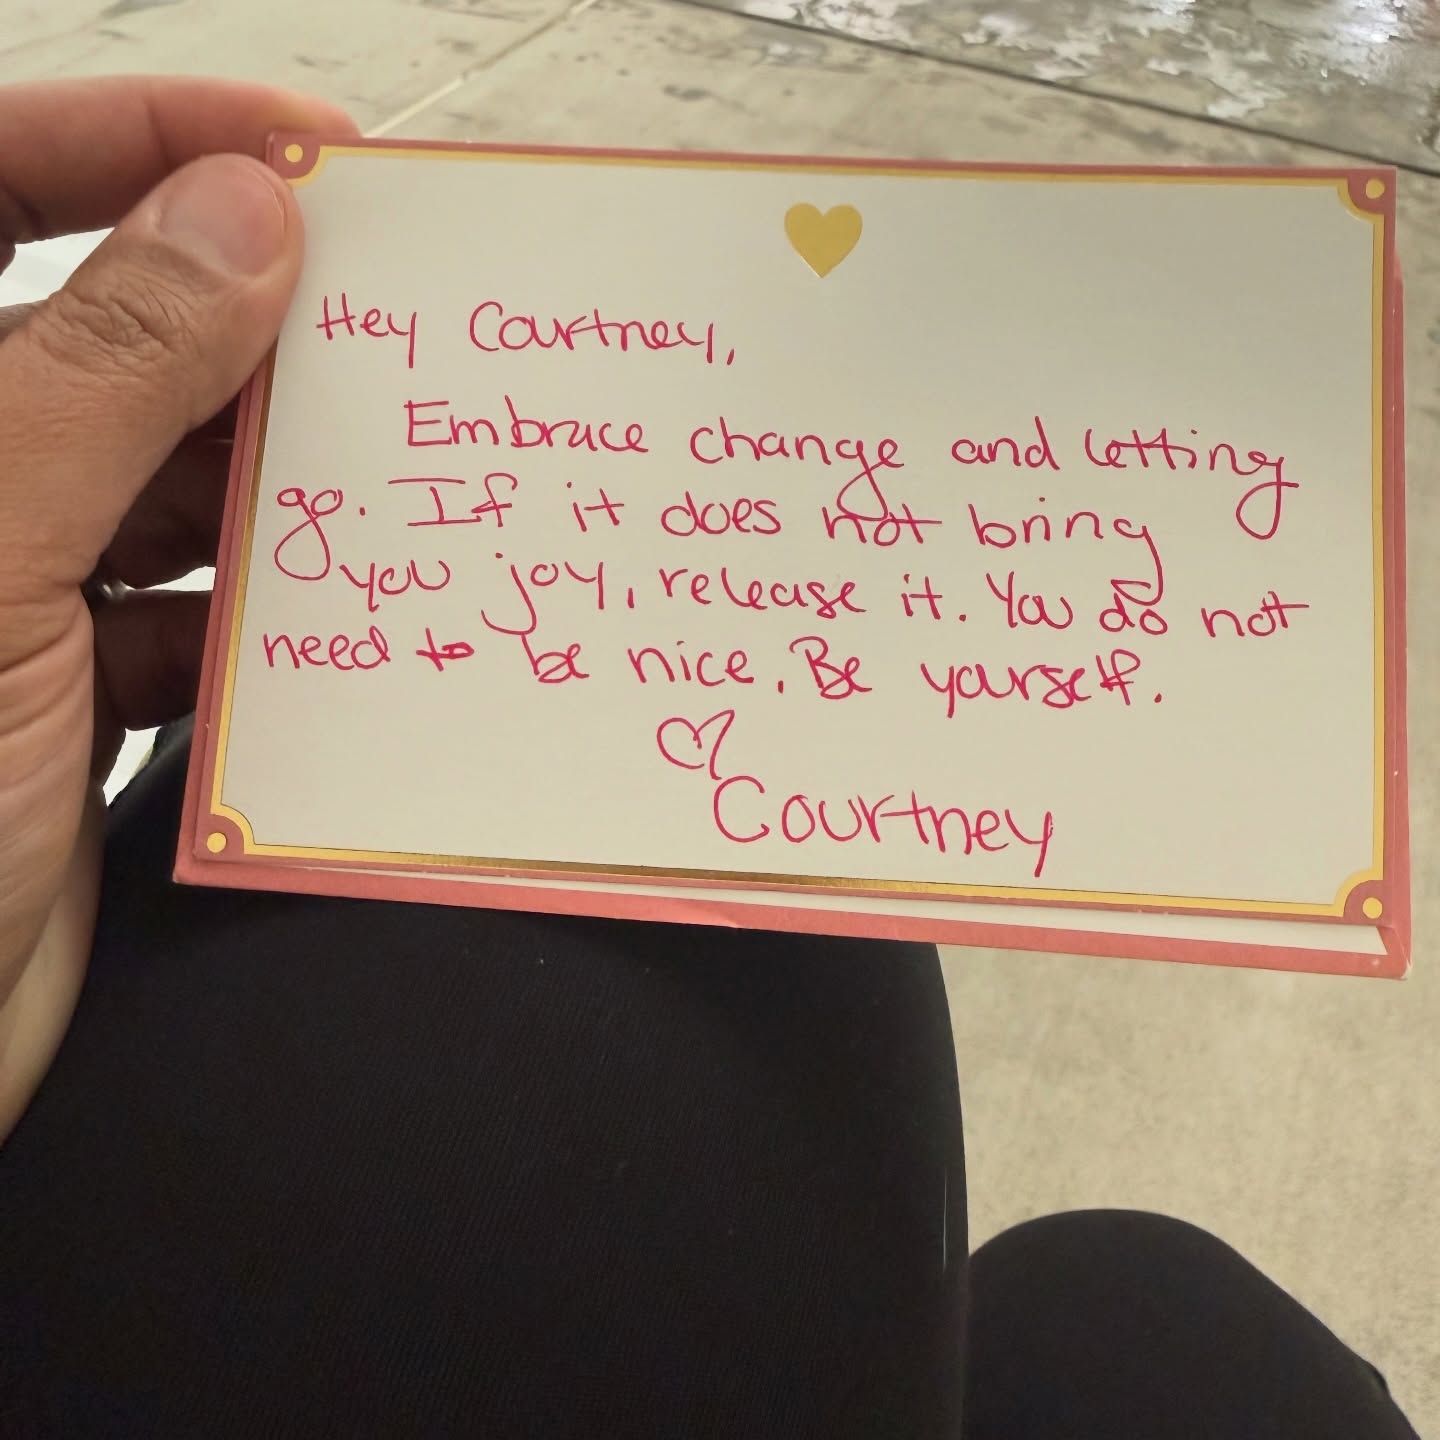 Hey Courtney,
Embrace change and letting
go. If it does not bring
you joy, release it. You do not
need to be nice. Be yourself.
Courtney